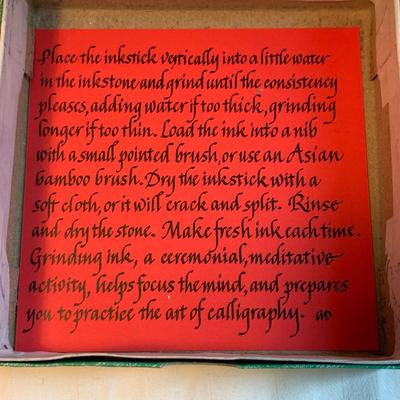 Place the inkstick vertically into a little water
in the inkstone and grind until the consistency
pleases, adding water if too thick, grinding
longer if too thin. Load the ink into a nib
with a small pointed brush, or use an Asian
bamboo brush. Dry the inkstick with a
soft cloth, or it will crack and split. Rinse
and dry the stone. Make fresh ink each time.
Grinding ink, a ceremonial, meditative
activity, helps focus the mind, and prepares
you to practice the art of calligraphy.